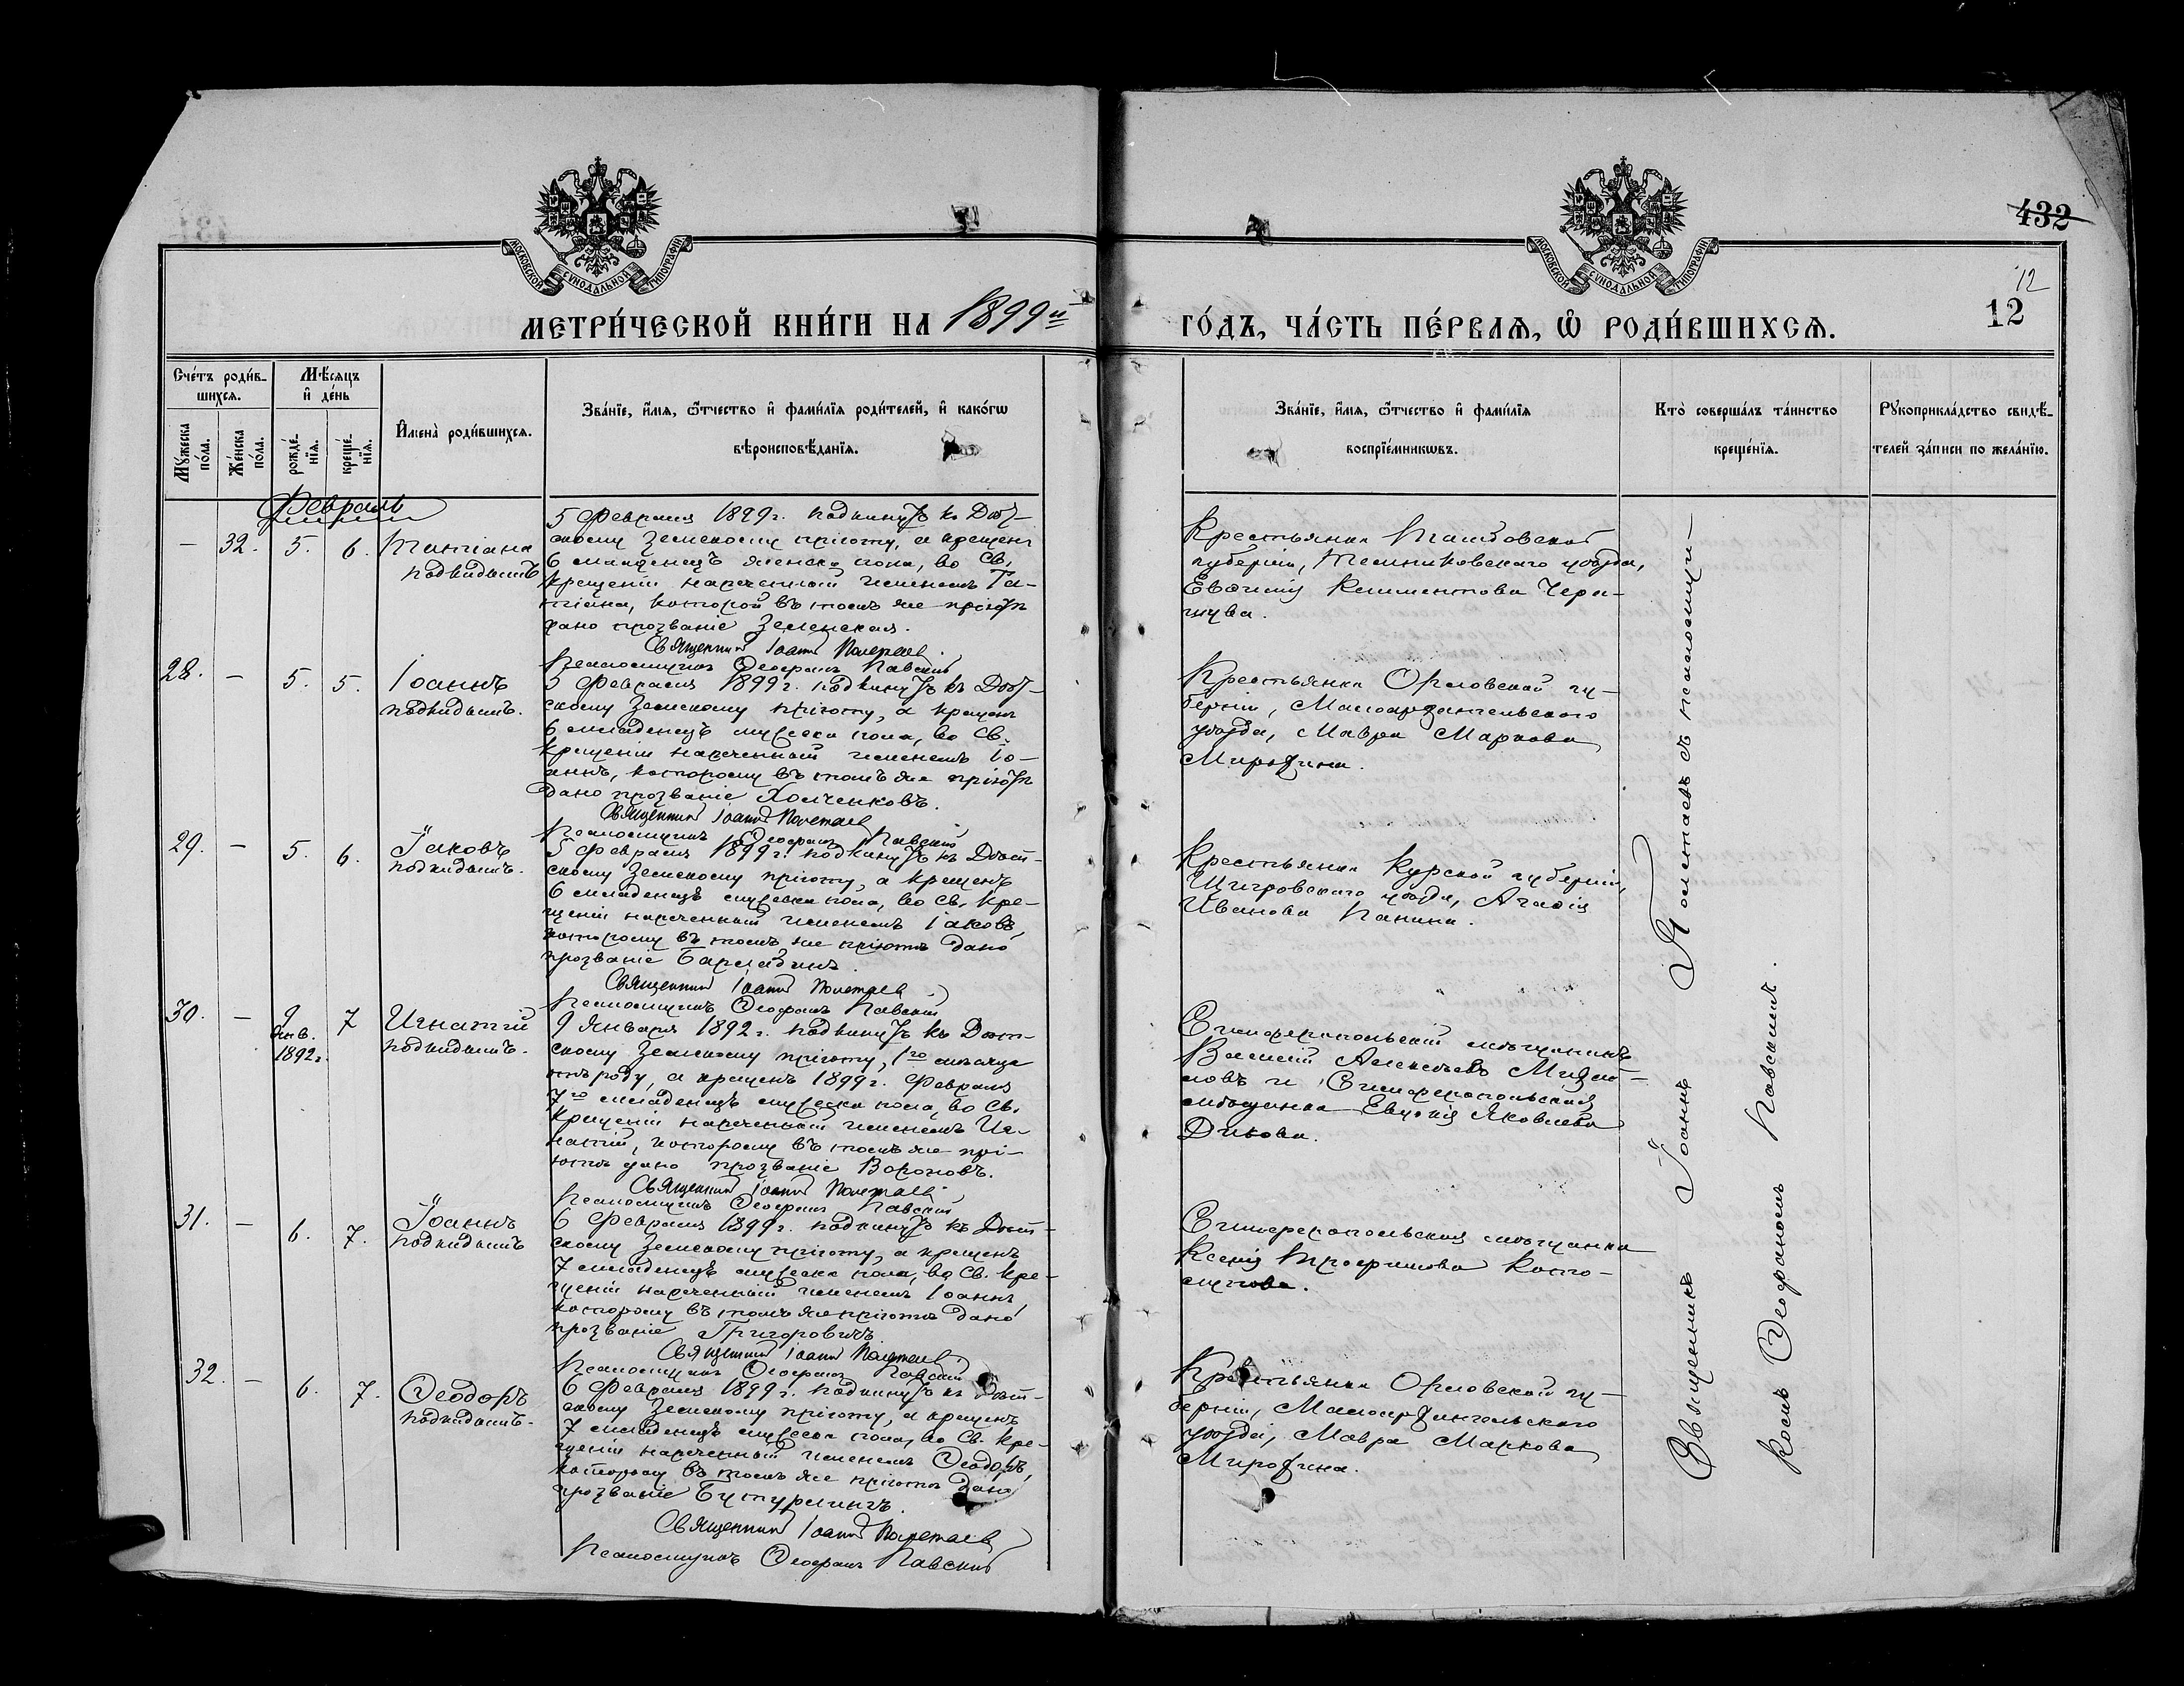 432
12
12
МОСКОВСКОЙ СУНОДАЛЬНОЙ ТИПОГРАФІИ
МОСКОВСКОЙ СУНОДАЛЬНОЙ ТИПОГРАФІИ
МЕТРИ́ЧЕСКОЙ КНИ́ГИ НА 1899й
ГО́ДЪ, ЧА́СТЬ ПЕ́РВАѦ, Ѡ҆ РОДИ́ВШИХСѦ.
Сче́тъ роди́в-
шихсѧ.
Мꙋжеска по́ла.
Же́нска по́ла.
Мѣ́сѧцъ
и҆ де́нь
рожде́-
нїѧ.
креще́-
нїѧ.
И҆мена̀ роди́вшихсѧ.
Зва́нїе, и҆́мѧ, ѻ҆́тчество и҆ фами́лїѧ роди́телей, и҆ како́гѡ
вѣроисповѣ́данїѧ.
Зва́нїе, и҆́мѧ, ѻ҆́тчество и҆ фами́лїѧ
воспрїе́мникѡвъ.
Кто̀ соверша́лъ та́инство
креще́нїѧ.
Рꙋкоприкла́дство свидѣ́-
телей за́писи по жела́нїю.
Февраль
— 32. 5. 6. Татіана
подкидышъ
5 Февраля 1899 г. подкинутъ къ Дѣт-
скому Земскому пріюту, а крещенъ
6 младенецъ женска пола, во Св.
крещеніи нареченный именемъ Та-
тіана, которой въ томъ же пріютѣ
дано прозваніе Земенская.
Священникъ Іоаннъ Полетаевъ
Псаломщикъ Ѳеофанъ Павскій
Крестьянка Тамбовской
губерніи, Темниковскаго уѣзда,
Евѳимія Климентова
28. — 5. 5. Іоаннъ
подкидышъ.
5 Февраля 1899 г. подкинутъ къ Дѣт-
скому Земскому пріюту, а крещенъ
6 младенецъ мужска пола, во Св.
крещеніи нареченный именемъ Іо-
аннъ, которому въ томъ же пріютѣ
дано прозваніе Хомченковъ.
Священникъ Іоаннъ Полетаевъ
Псаломщикъ Ѳеофанъ Павскій
Крестьянка Орловской гу-
берніи, Малоархангельскаго
уѣзда, Мавра Маркова
Мирохина.
29. — 5. 6. Іаковъ
подкидышъ.
5 Февраля 1899 г. подкинутъ къ Дѣт-
скому Земскому пріюту, а крещенъ
6 младенецъ мужска пола, во Св. Кре-
щеніи нареченный именемъ Іаковъ,
которому въ томъ же пріютѣ дано
прозваніе
Священникъ Іоаннъ Полетаевъ
Псаломщикъ Ѳеофанъ Павскій
Крестьянка Курской губерніи,
Щигровскаго уѣзда, Агаѳія
Иванова Панина.
30. — 9
Янв.
1892 г.
7 Игнатій
подкидышъ.
9 Января 1892 г. подкинутъ къ Дѣт-
скому Земскому пріюту, 1го мѣсяца
отъ роду, а крещенъ 1899 г. Февраля
7го младенецъ мужска пола, во Св.
Крещеніи нареченный именемъ Иг-
натій, которому въ томъ же прі-
ютѣ дано прозваніе Вороновъ.
Священникъ Іоаннъ Полетаевъ
Псаломщикъ Ѳеофанъ Павскій
Симферопольскій мѣщанинъ
Василій Алексѣевъ
и Симферопольская
мѣщанка Евдокія Яковлева
Дикова.
31. — 6. 7. Іоаннъ
подкидышъ
6 Февраля 1899 г. подкинутъ къ Дѣт-
скому Земскому пріюту, а крещенъ
7 младенецъ мужска пола, во Св. Кре-
щеніи нареченный именемъ Іоаннъ,
которому въ томъ же пріютѣ дано
прозваніе Григоровичъ.
Священникъ Іоаннъ Полетаевъ
Псаломщикъ Ѳеофанъ Павскій
Симферопольская мѣщанка
Ксенія Трофимова
32. — 6. 7. Ѳеодоръ
подкидышъ.
6 Февраля 1899 г. подкинутъ къ Дѣт-
скому Земскому пріюту, а крещенъ
7 младенецъ мужска пола, во Св. Кре-
щеніи нареченный именемъ Ѳеодоръ,
которому въ томъ же пріютѣ дано
прозваніе Бутурлинъ.
Священникъ Іоаннъ Полетаевъ
Псаломщикъ Ѳеофанъ Павскій
Крестьянка Орловской гу-
берніи, Малоархангельскаго
уѣзда, Мавра Маркова
Мирохина.
Священникъ Іоаннъ Полетаевъ съ псаломщи-
комъ Ѳеофаномъ Павскимъ.